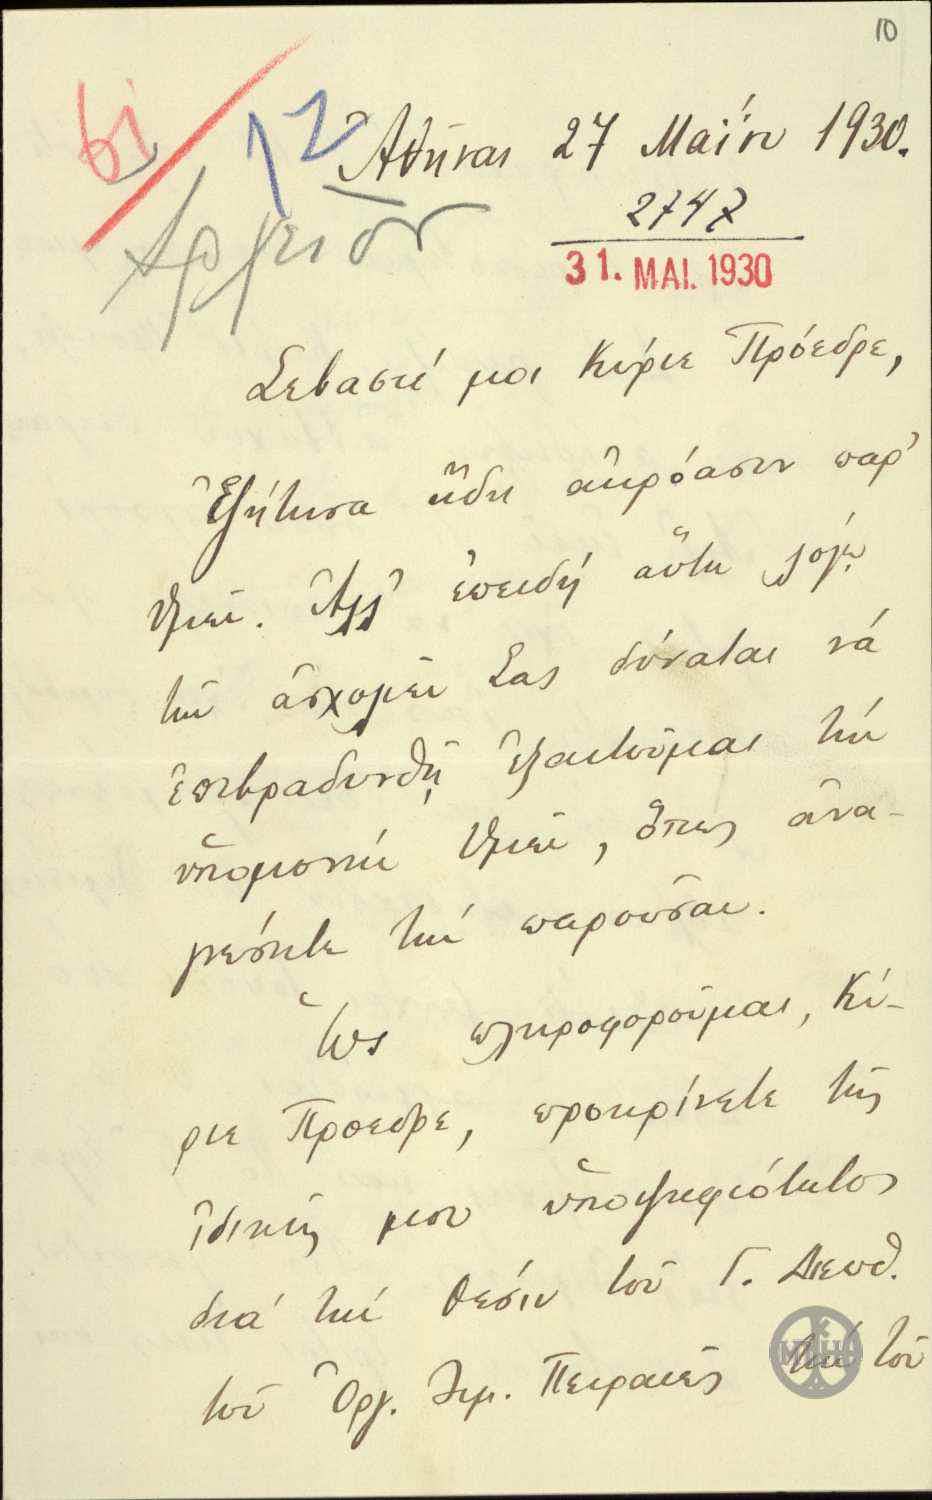 10
61
12
Ἀθῆναι 27 Μαΐου 1930.
Ἀρχεῖον
2747
31. ΜΑΪ. 1930
Σεβαστέ μοι Κύριε Πρόεδρε,
Ἐζήτησα ἤδη ἀκρόασιν παρ'
Ὑμῖν. Ἀλλ' ἐπειδή αὕτη λόγῳ
τῶν ἀσχολιῶν Σας δύναται νά
ἐπιβραδυνθῇ ἐξαιτοῦμαι τήν
ὑπομονήν Ὑμῶν, ὅπως ἀνα-
γνώσητε τήν παροῦσαν.
Ὡς πληροφοροῦμαι, Κύ-
ριε Πρόεδρε, προκρίνετε τῆς
ἰδικῆς μου ὑποψηφιότητος
διά τήν θέσιν τοῦ Γ. Διευθ.
τοῦ Ὀργ. Λιμ. Πειραιῶς τήν τοῦ